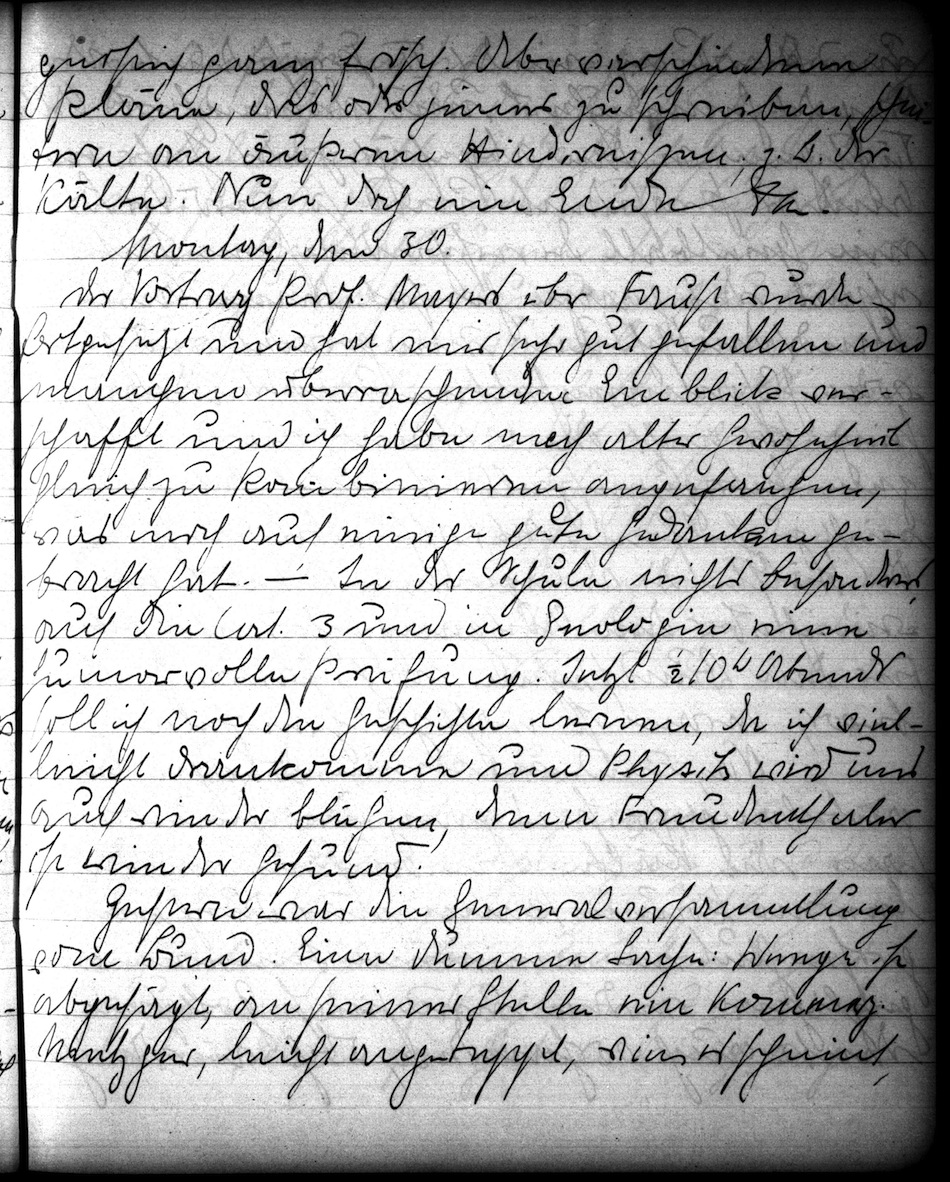 ganz frisch. Aber verschiedene
Pläne, das oder jenes zu schreiben, schei-
tern an äußeren Hindernissen, z. B. der
Kälte. Nun doch ein Ende
Montag, den 30.
Der Vortrag Prof. Mayers über Faust wurde
fortgesetzt und hat mir sehr gut gefallen und
manchen überraschenden Einblick ver-
schafft und ich habe nach alter Gewohnheit
gleich zu kombinieren angefangen,
was mich auf einige gute Gedanken ge-
bracht hat. — In der Schule nichts besonderes,
auf die Lat. 3 und in Geologie eine
humorvolle Prüfung. Jetzt ½10h Abends
soll ich noch die Geschichte lernen, da ich viel-
leicht drankomme und Physik wird uns
auch wieder blühen, denn Freudenthaler
ist wieder gesund.
Gestern war die Generalversammlung
vom Bund. Eine dumme Sache: ist
abgesägt, an seiner Stelle ein
Metzger, leicht, wie es scheint,